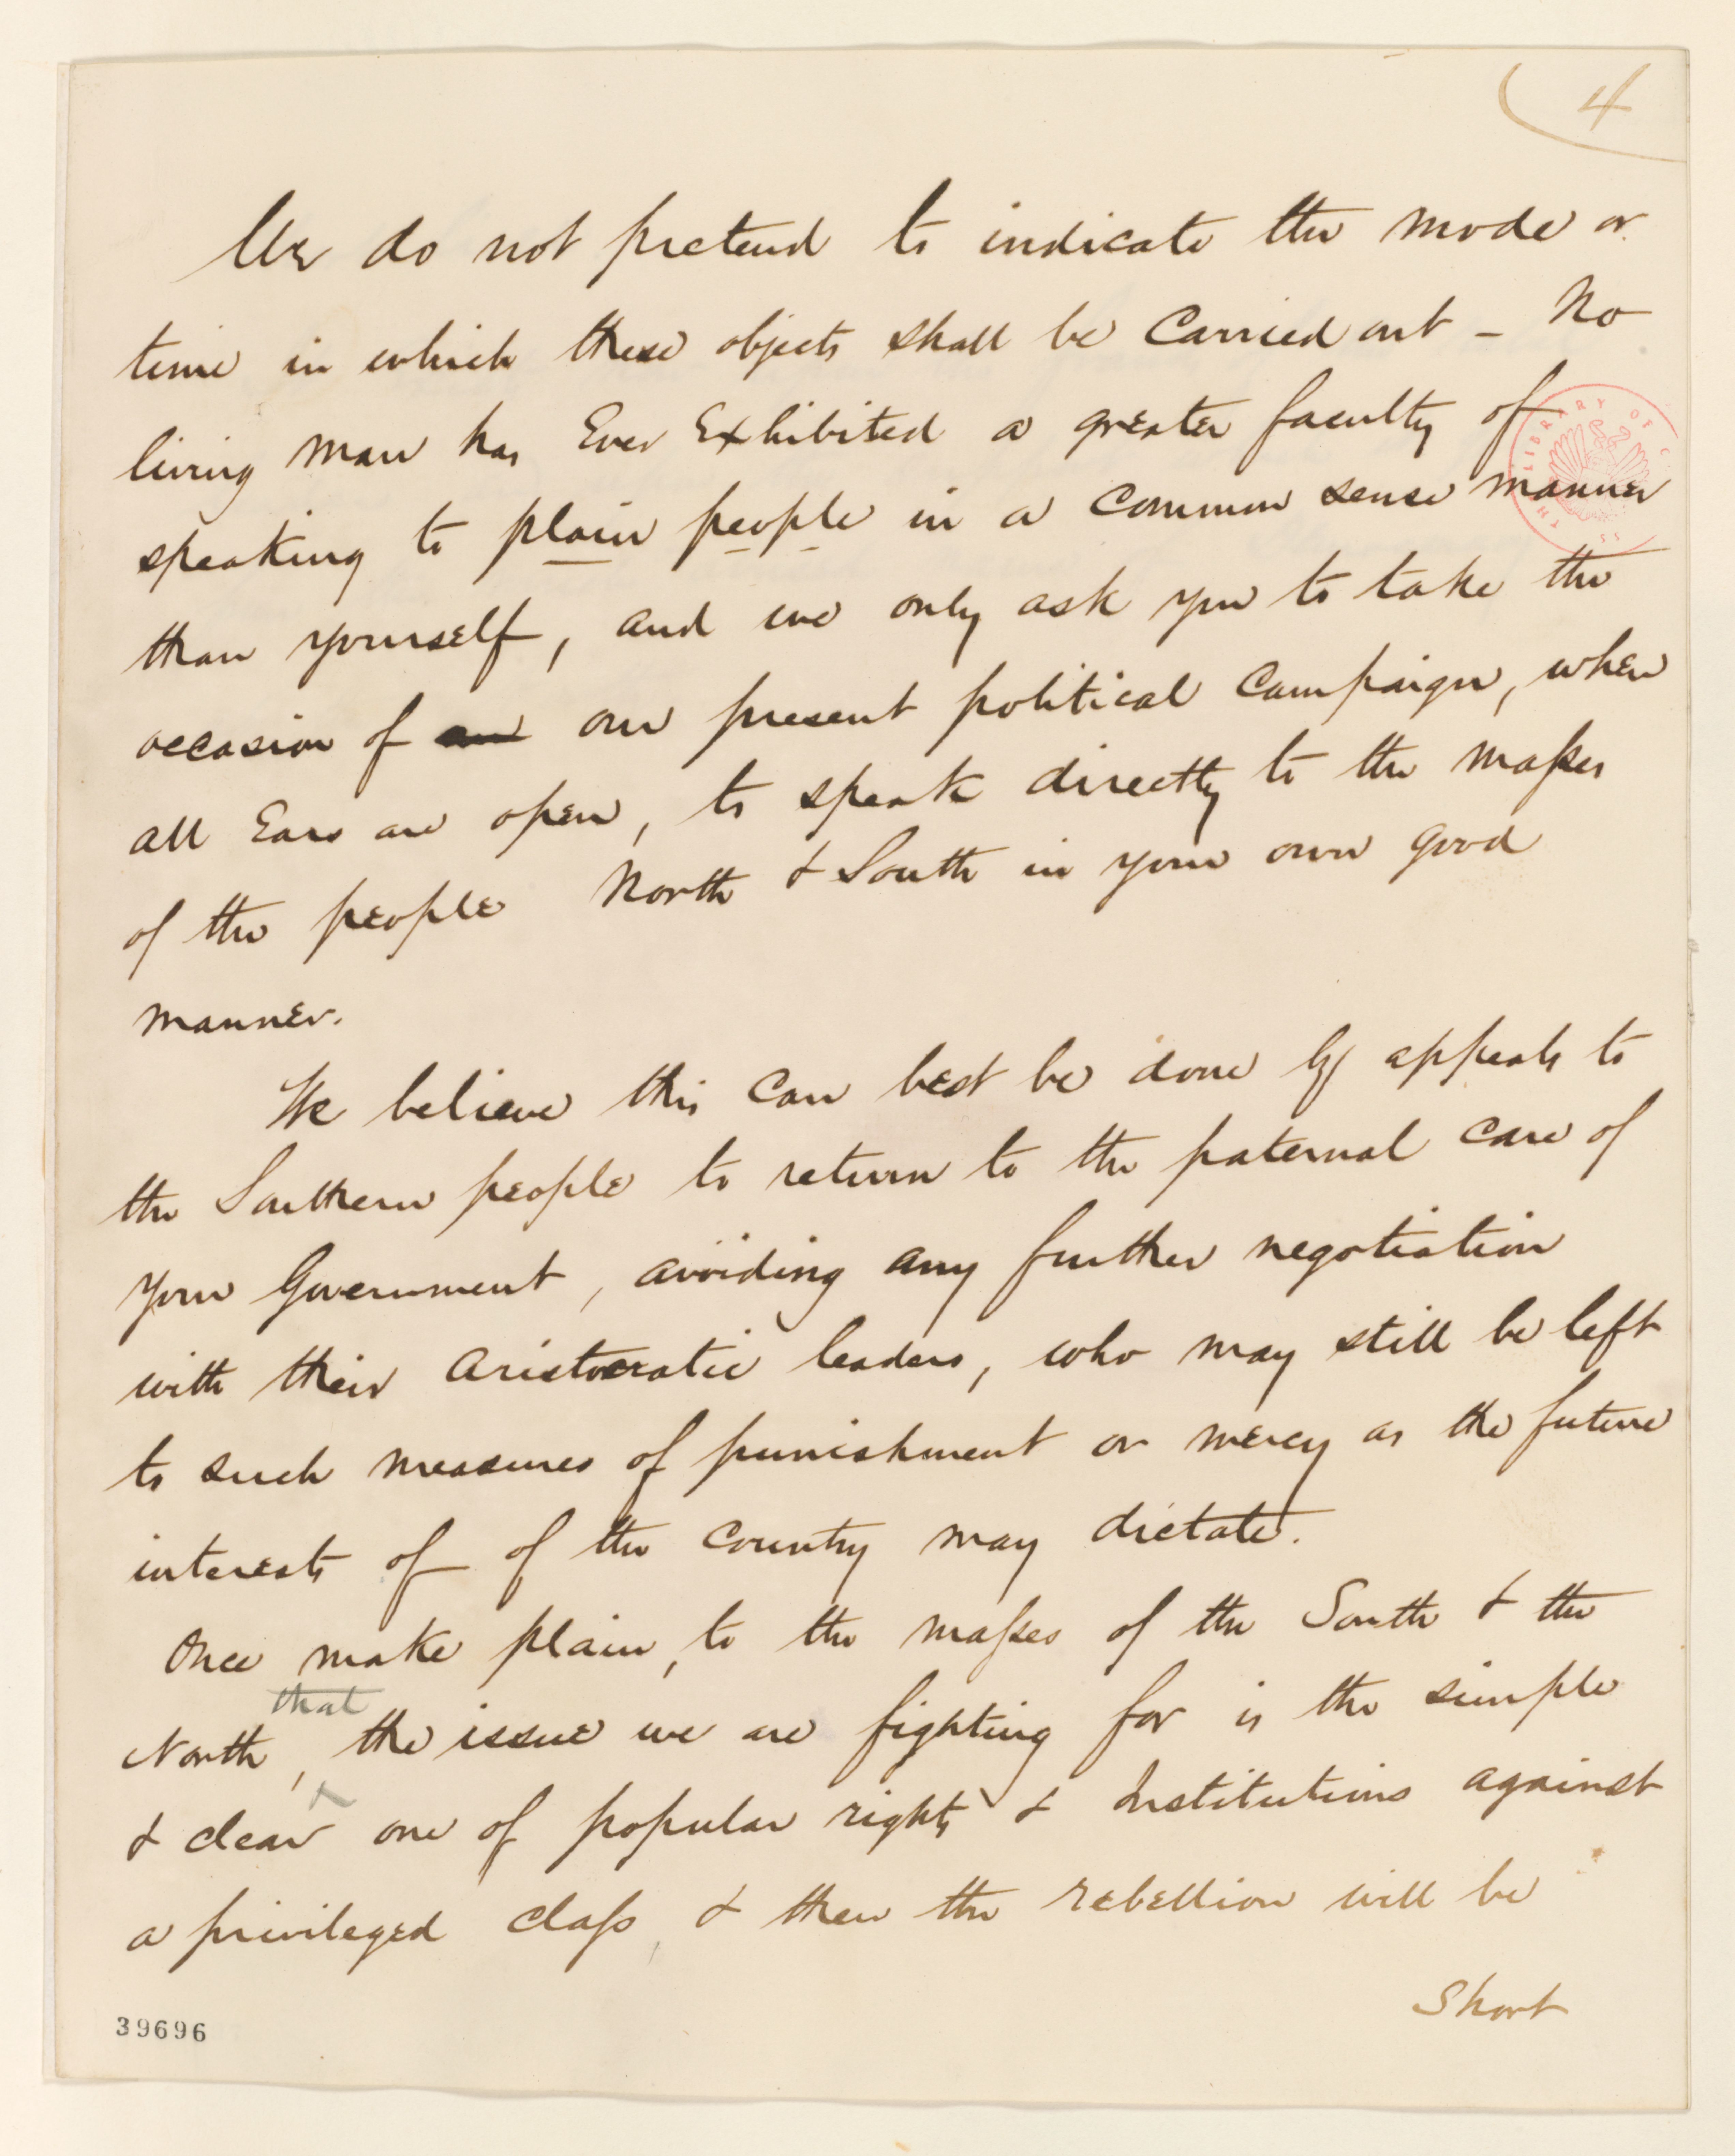 4
We do not pretend to indicate the mode or
time in which these objects shall be carried out - No
living man has Ever Exhibited a greater faculty of
speaking to plain people in a common sense manner
than yourself, and we only ask you to take the
occasion of our present political campaign, when
all Ears are open, to speak directly to the masses
of the people North & South in your own good
manner.
We believe this can best be done by appeals to
the Southern people to return to the paternal care of
your Government, avoiding any further negotiation
with their aristocratic leaders, who may still be left
to such measures of punishment or mercy as the future
interests of of the country may dictate.
Once make plain, to the masses of the South & the
that
North, the issue we are fighting for is the simple
& clear one of popular rights & Institutions against
a privileged class, & then the rebellion will be
Short
39696
THE LIBRARY OF C
SS